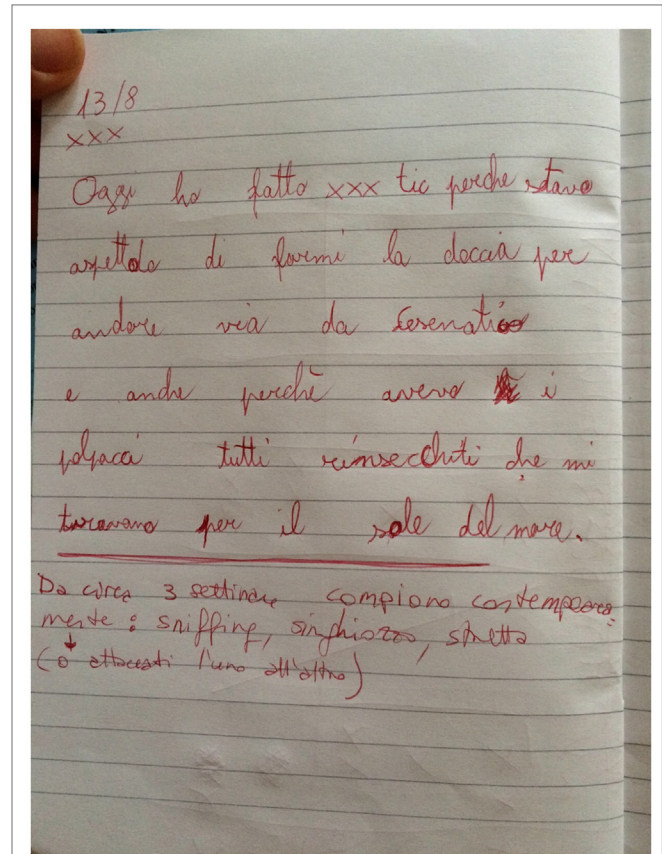 13/8
xxx
Oggi ho fatto xxx tic perche stavo
aspettdo di farmi la doccia per
andare via da Cesenatico
e anche perchè avevo i
polpacci tutti rinsecchiti che mi
tiravano per il sole del mare.
Da circa 3 settimane compiono contemporanea-
mente: sniffing, singhiozzo, stretta
(o attaccati l'uno all'altro)